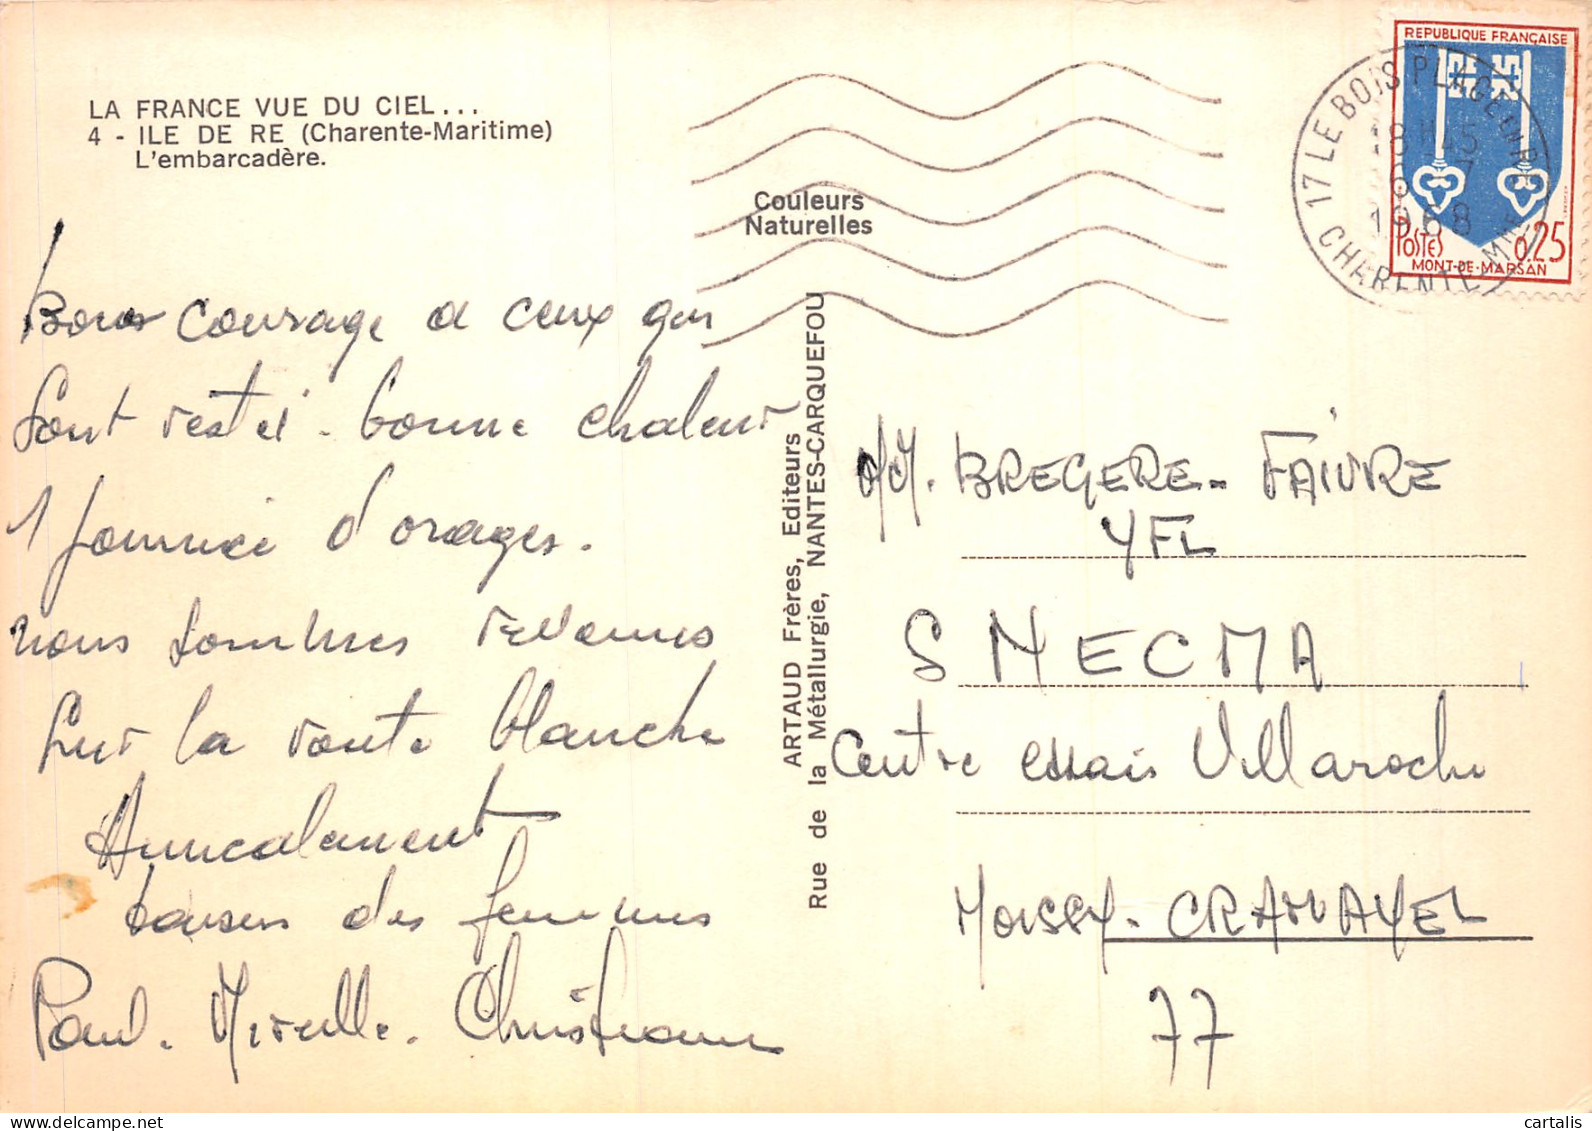 LA FRANCE VUE DU CIEL...
4 - ILE DE RE (Charente-Maritime)
L'embarcadère.
Couleurs
Naturelles
REPUBLIQUE FRANÇAISE
POSTES 0,25
MONT-DE-MARSAN
17 LE BOIS PLAGE EN RE
18H45
6 -7
1968
CHARENTE MME
Bons courage a ceux qui
sont resté. bonne chaleur
1 journée d'orages.
nous sommes revenus
sur la route blanche
Amicalement
baisers des femmes
Paul. Mireille. Christiane
ARTAUD Frères, Editeurs
Rue de la Métallurgie, NANTES-CARQUEFOU
MM. BREGERE - FAIVRE
YFL
SNECMA
Centre essais Villaroche
MOISSY-CRAMAYEL
77
cartalis